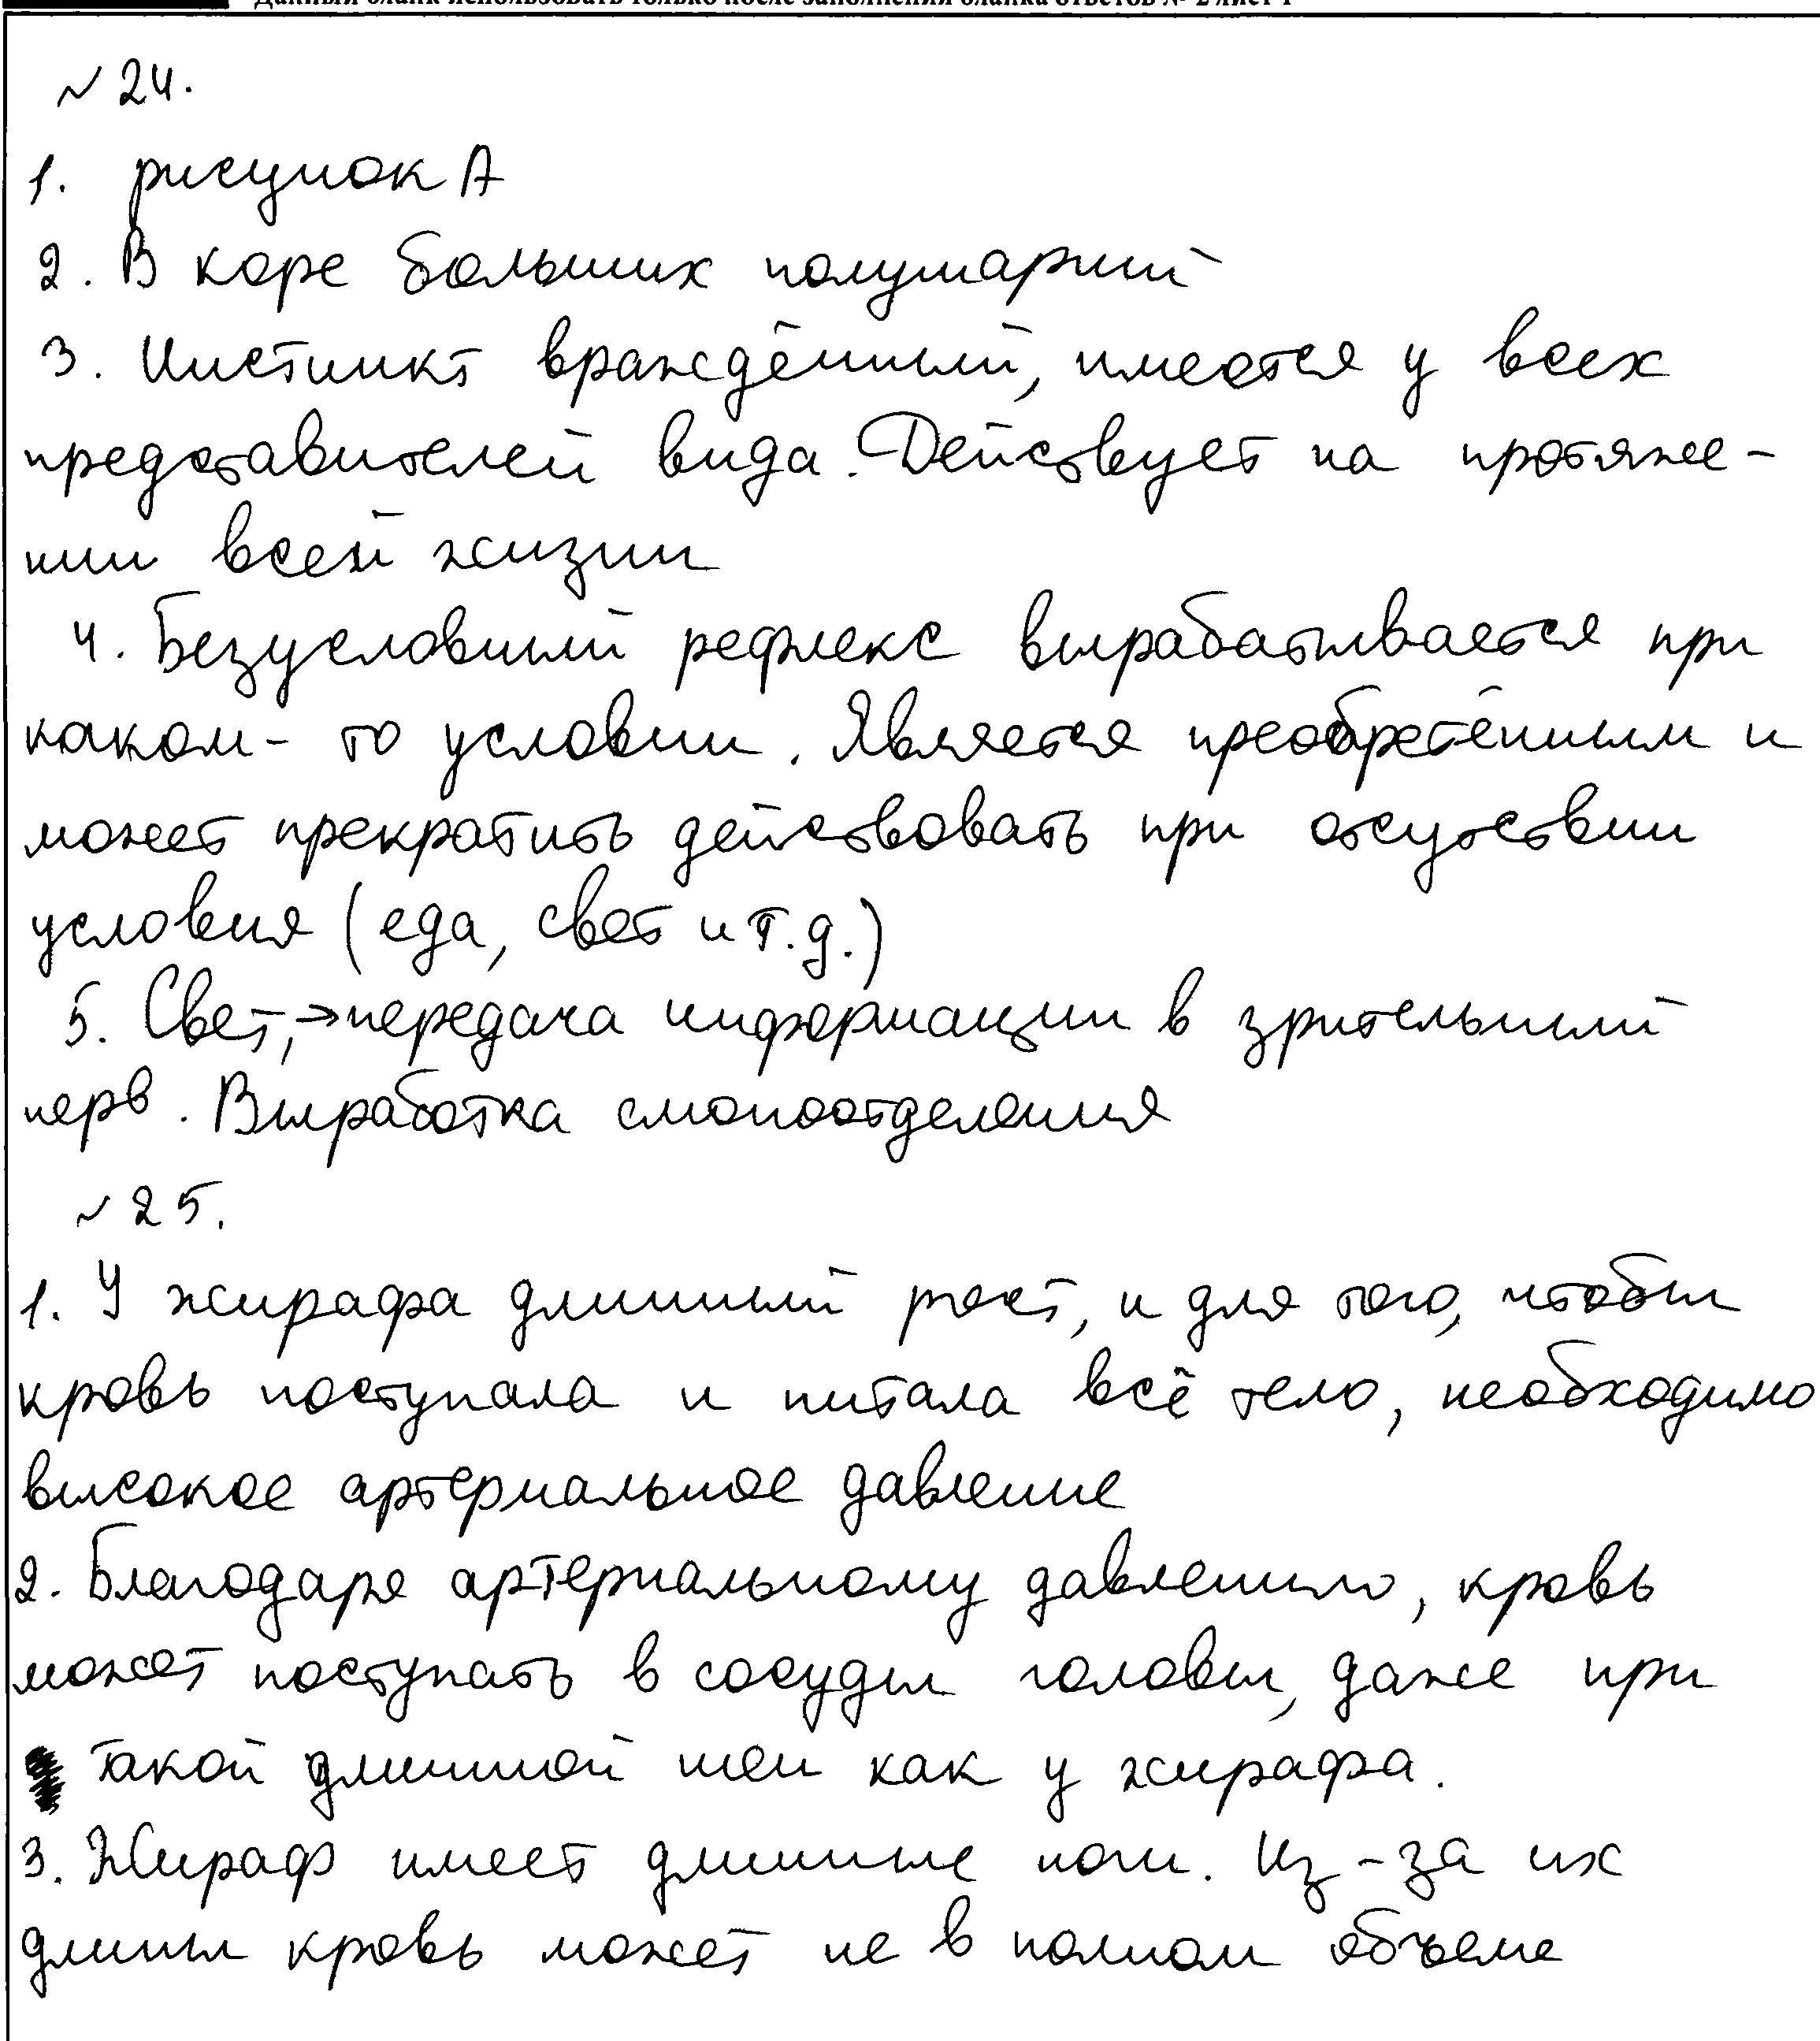 Данный бланк использовать только после заполнения бланка ответов № 2 лист 1
~ 24.
1. рисунок А
2. В коре больших полушарий
3. Инстинкт врождённый, имеется у всех
представителей вида. Действует на протяже-
нии всей жизни
4. Безусловный рефлекс вырабатывается при
каком-то условии. Является преобретённым и
может прекратить действовать при отсутствии
условия (еда, свет и т.д.)
5. Свет, →передача информации в зрительный
нерв. Выработка слюноотделения
~ 25.
1. У жирафа длинный рост, и для того, чтобы
кровь поступала и питала всё тело, необходимо
высокое артериальное давление
2. Благодаря артериальному давлению, кровь
может поступать в сосуды головы, даже при
такой длинной шеи как у жирафа.
3. Жираф имеет длинные ноги. Из-за их
длины кровь может не в полном объеме